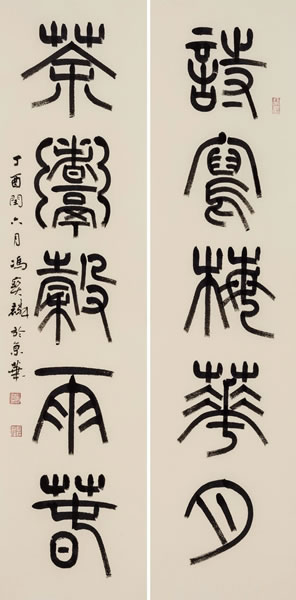 詩寫梅華月
茶穀雨春
丁酉閏六月馮寶麟於京華